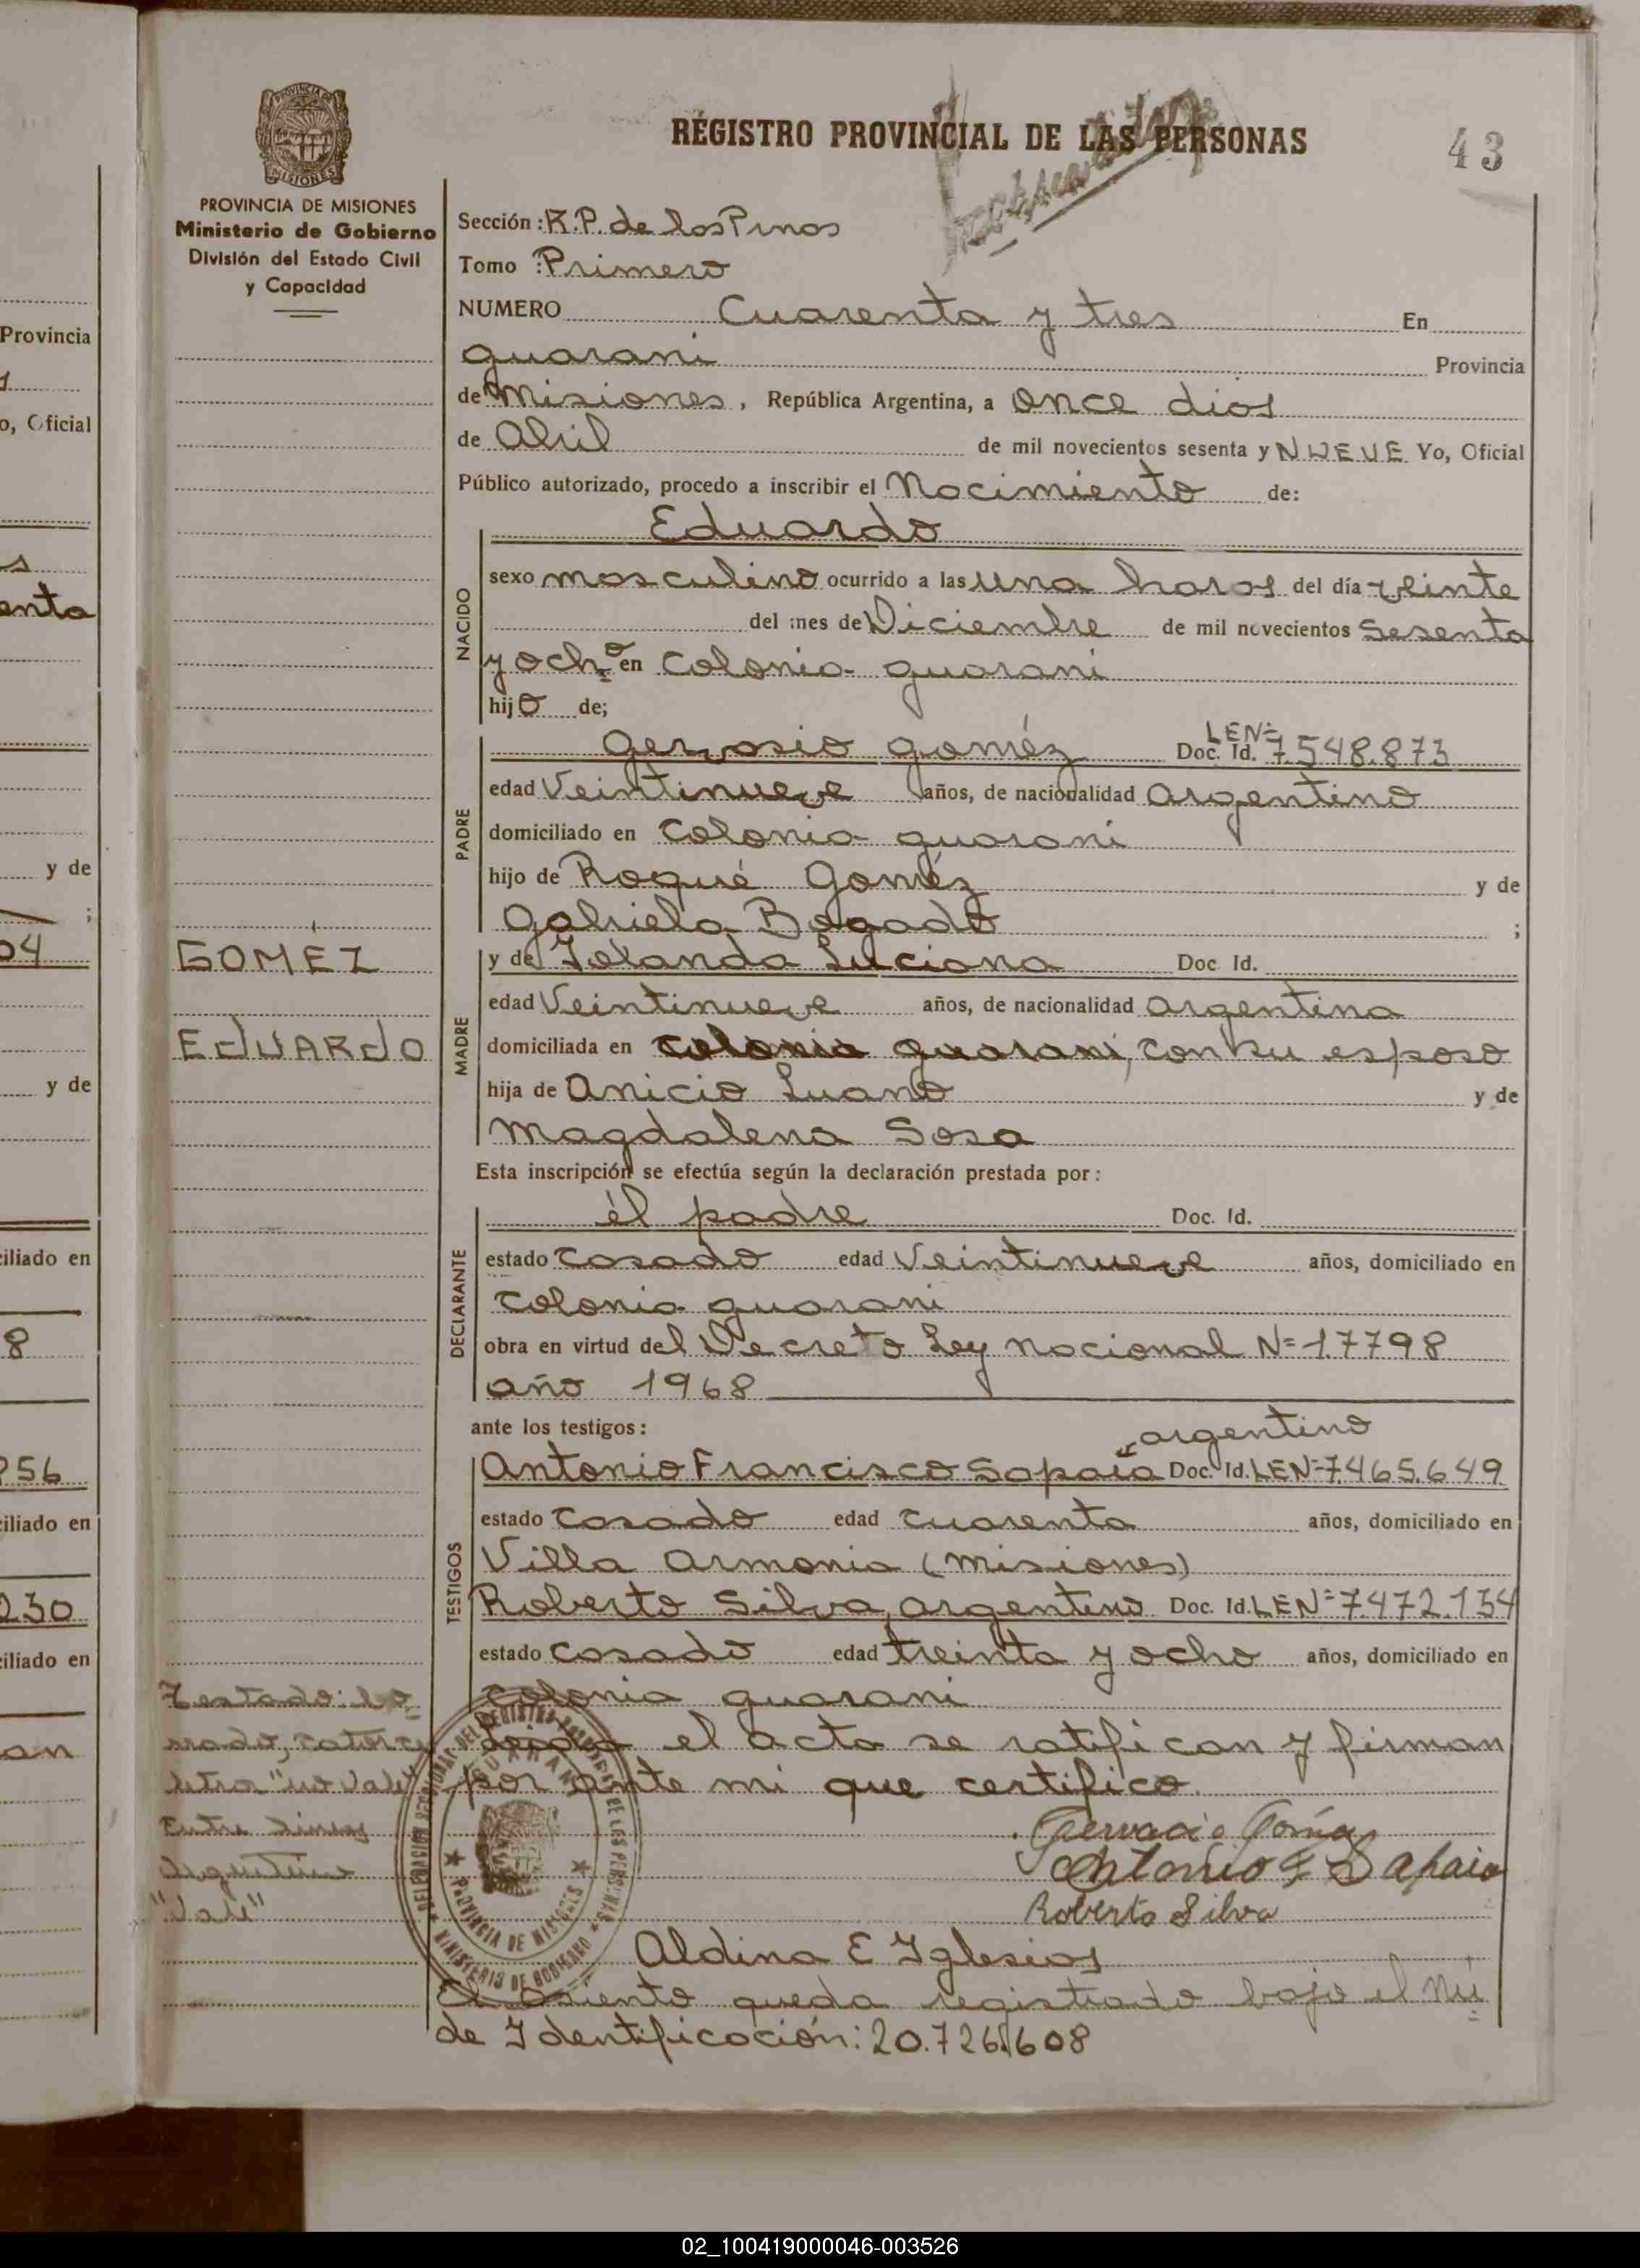 PROVINCIA DE MISIONES
Ministerio de Gobierno
División del Estado Civil
y Capacidad
REGISTRO PROVINCIAL DE LAS PERSONAS
43
Sección: R.P. de los Pinos
Tomo: Primero
NUMERO Cuarenta y tres En
guarani Provincia
de Misiones, República Argentina, a once dias
de Abril de mil novecientos sesenta y NUEVE Yo, Oficial
Público autorizado, procedo a inscribir el Nacimiento de:
Eduardo
NACIDO
sexo masculino ocurrido a las una horas del día veinte
del mes de Diciembre de mil novecientos sesenta
y ocho en colonia guarani
hijo de;
PADRE
Gervasio goméz Doc. Id. LEN= 7.548.873
edad Veintinueve años, de nacionalidad argentino
domiciliado en colonia guarani
hijo de Roqué Goméz y de
Gabriela Bogado ;
GOMÉZ
EdUARdO
MADRE
y de Yolanda Luciana Doc Id.
edad Veintinueve años, de nacionalidad argentina
domiciliada en colonia guarani, con su esposo
hija de Anicio Luano y de
Magdalena Sosa
Esta inscripción se efectúa según la declaración prestada por:
él padre Doc. Id.
DECLARANTE
estado casado edad Veintinueve años, domiciliado en
colonia guarani
obra en virtud del Decreto Ley nacional N= 17798
año 1968
ante los testigos:
argentino
TESTIGOS
Antonio Francisco Sapaia Doc. Id. LEN= 7.465.649
estado casado edad cuarenta años, domiciliado en
Villa Armonia (Misiones)
Roberto Silva, argentino Doc. Id. LEN= 7.472.134
estado casado edad treinta y ocho años, domiciliado en
colonia guarani
Leida el acta se ratifican y firman
por ante mi que certifico.
Testado:
letra "no Vale"
Entre lineas
Argentino
"Vale"
Gervacio Goméz
Antonio F Sapaia
Roberto Silva
Aldina E Yglesias
El asiento queda registrado bajo el Nú
de Identificación: 20.726.608
GUARANI
PROVINCIA DE MISIONES
MINISTERIO DE GOBIERNO
Provincia
o, Oficial
s
enta
y de
;
04
y de
ciliado en
8
256
ciliado en
230
ciliado en
an
02_100419000046-003526